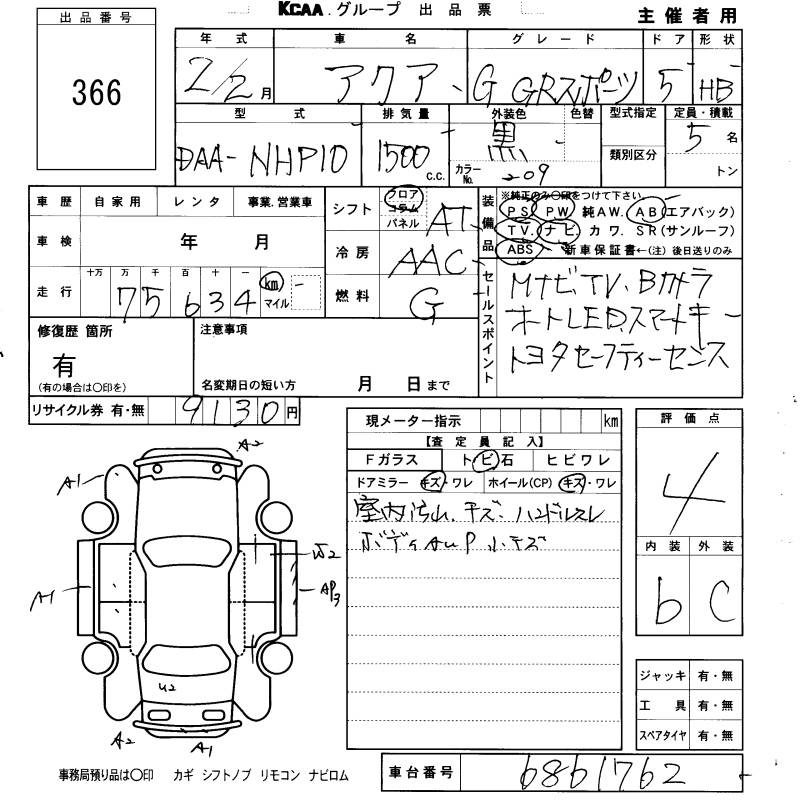 KCAA.グループ 出品票
主催者用
出品番号
366
年式 車名 グレード ドア 形状
2/2月 アクア G GRスポーツ 5 HB
型式 排気量 外装色 色替 型式指定 定員・積載
DAA-NHP10 1500c.c. 黒 5名
カラーNo. 209 類別区分 トン
車歴 自家用 レンタ 事業.営業車
車検 年 月
走行 十万 万 千 百 十 一
75634 km マイル
シフト フロア コラム パネル AT
冷房 AAC
燃料 G
装備品
※純正のみ〇印をつけて下さい
PS PW 純AW. AB(エアバック)
TV. ナビ. カワ. SR(サンルーフ)
ABS 新車保証書←(注)後日送りのみ
セールスポイント
MナビTV.Bカメラ
オートLED.スマートキー
トヨタセーフティーセンス
修復歴 箇所
有
(有の場合は〇印を)
注意事項
名変期日の短い方 月 日まで
リサイクル券 有・無 9130円
現メーター指示 km
【査定員記入】
Fガラス ト・ビ・石 ヒビワレ
ドアミラー キズ・ワレ ホイール(CP) キズ・ワレ
室内汚れ.キズ.ハンドルスレ
ボディAUP小キズ
評価点
4
内装 外装
b C
ジャッキ 有・無
工具 有・無
スペアタイヤ 有・無
A2
A1
W2
A1
AP3
U2
A2
A1
事務局預り品は〇印 カギ シフトノブ リモコン ナビロム
車台番号 6861762